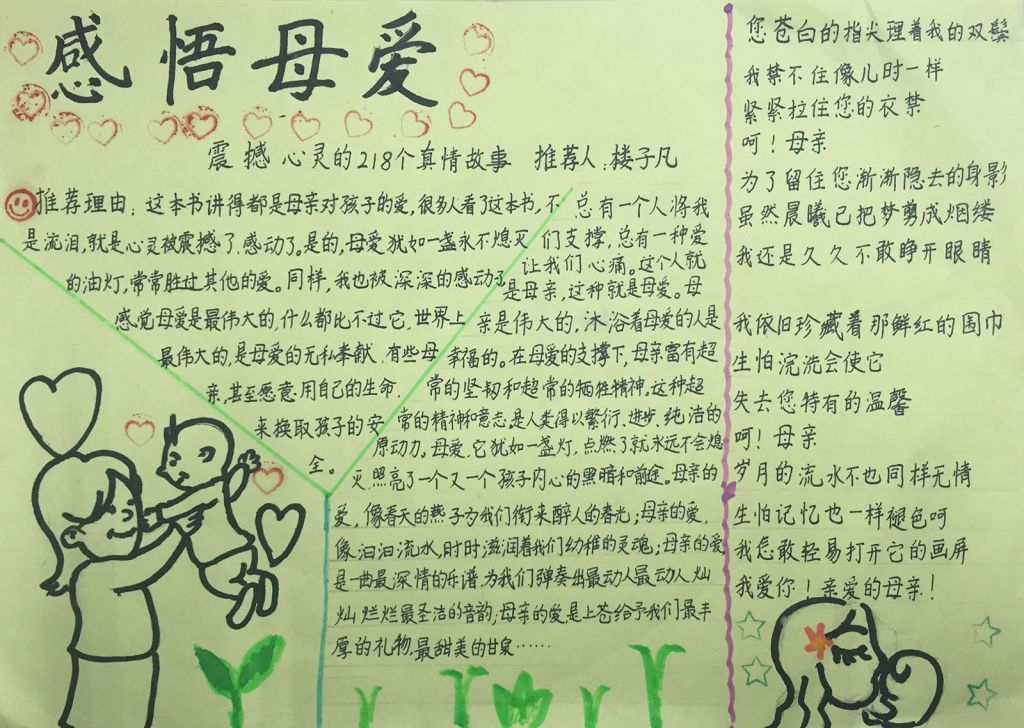 感悟母爱
震撼心灵的218个真情故事 推荐人:楼子凡
推荐理由:这本书讲得都是母亲对孩子的爱,很多人看了这本书,不
是流泪,就是心灵被震撼了,感动了。是的,母爱犹如一盏永不熄灭
的油灯,常常胜过其他的爱。同样,我也被深深的感动了
感觉母爱是最伟大的,什么都比不过它,世界上
最伟大的,是母爱的无私奉献,有些母
亲,甚至愿意用自己的生命,
来换取孩子的安
全。
总有一个人将我
们支撑,总有一种爱
让我们心痛。这个人就
是母亲,这种就是母爱。母
亲是伟大的,沐浴着母爱的人是
幸福的。在母爱的支撑下,母亲富有超
常的坚韧和超常的牺牲精神。这种超
常的精神和意志,是人类得以繁衍、进步、纯洁的
原动力。母爱,它犹如一盏灯,点燃了就永远不会熄
灭,照亮了一个又一个孩子内心的黑暗和前途。母亲的
爱,像春天的燕子为我们衔来醉人的春光;母亲的爱,
像汩汩流水,时时滋润着我们幼稚的灵魂;母亲的爱
是一曲最深情的乐谱为我们弹奏出最动人最动人灿
灿烂烂最圣洁的音韵;母亲的爱是上苍给予我们最丰
厚的礼物,最甜美的甘泉……
您苍白的指尖理着我的双鬓
我禁不住像儿时一样
紧紧拉住您的衣禁
呵!母亲
为了留住您渐渐隐去的身影
虽然晨曦已把梦剪成烟缕
我还是久久不敢睁开眼睛
我依旧珍藏着那鲜红的围巾
生怕浣洗会使它
失去您特有的温馨
呵!母亲
岁月的流水不也同样无情
生怕记忆也一样褪色呵
我怎敢轻易打开它的画屏
我爱你!亲爱的母亲!